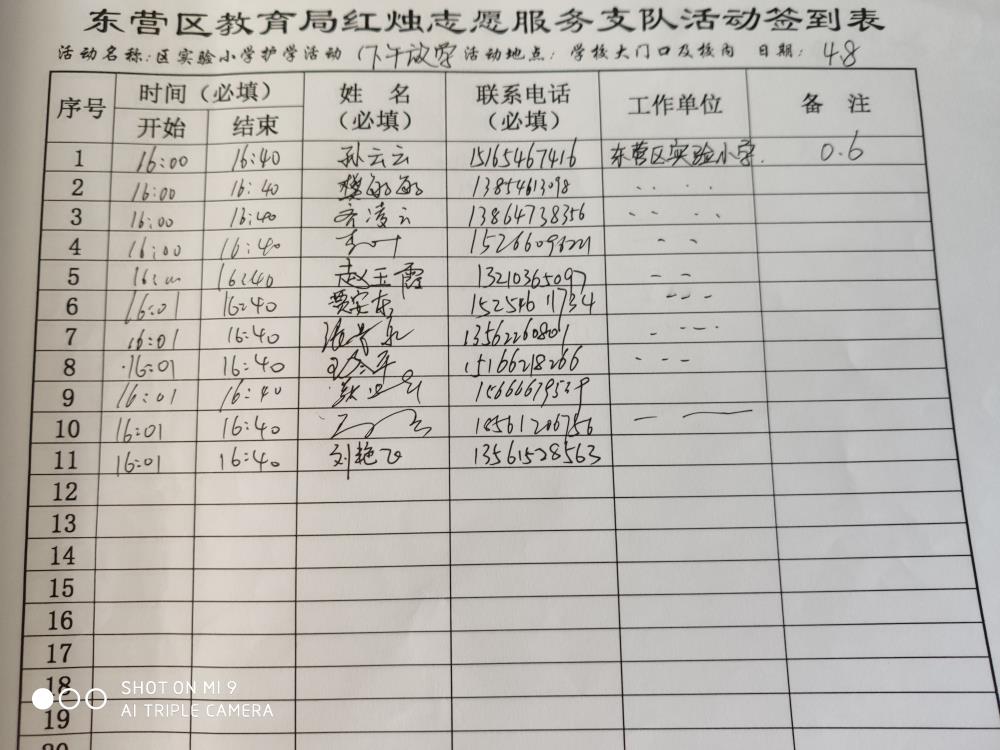 东营区教育局红烛志愿服务支队活动签到表
活动名称:区实验小学护学活动 下午放学 活动地点: 学校大门口及校内 日期: 4.8
序号 时间（必填） 姓名（必填） 联系电话（必填） 工作单位 备注
开始 结束
1 16:00 16:40 孙云云 15165467416 东营区实验小学. 0.6
2 16:00 16:40 13854613098
3 16:00 16:40 齐凌云 13864738356
4 16:00 16:40
5 16:40 赵玉霞 13210365097
6 16:01 16:40 贾安东 15254611734
7 16:01 16:40 13562260801
8 16:01 16:40 15166218266
9 16:01 16:40
10 16:01 16:40
11 16:01 16:40 刘艳飞 13561528563
12
13
14
15
16
17
18
19
20
SHOT ON MI 9
AI TRIPLE CAMERA